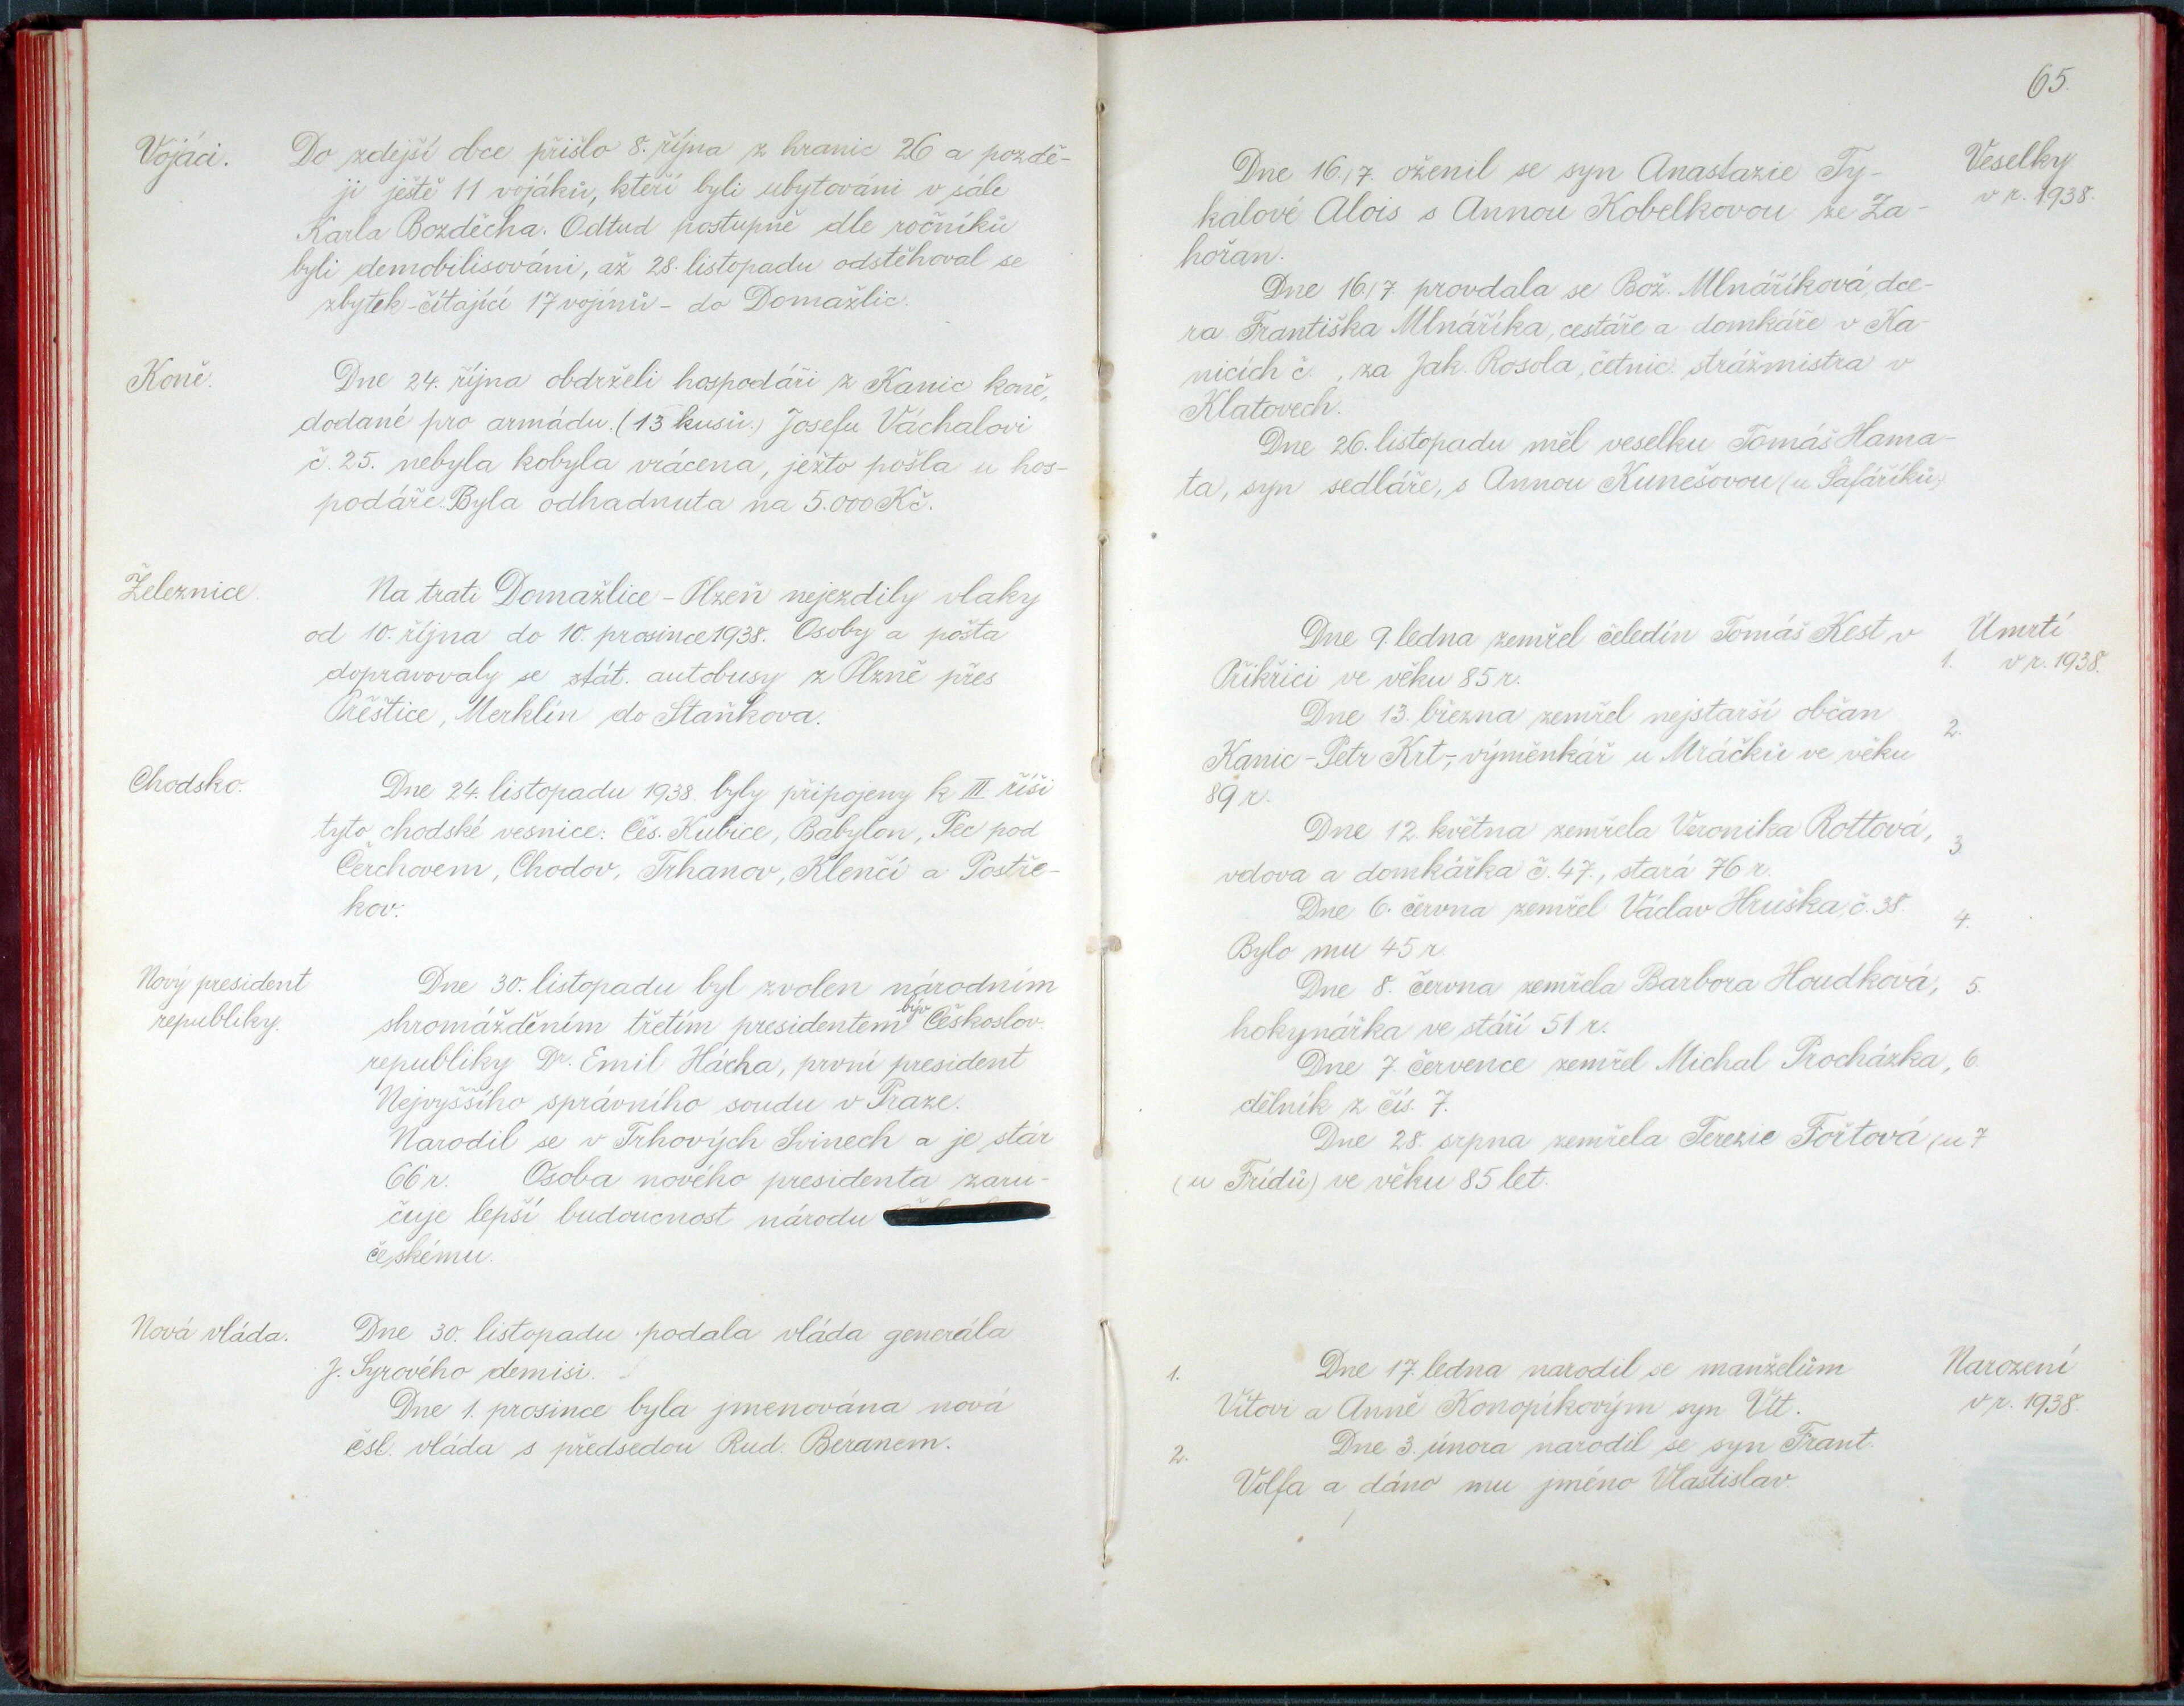 Vojáci.
Do zdejší obce přišlo 8. října z hranic 26 a pozdě-
ji ještě 11 vojáků, kteří byli ubytováni v sále
Karla Bozděcha. Odtud postupně dle ročníků
byli demobilisováni, až 28. listopadu odstěhoval se
zbytek - čítající 17 vojínů - do Domažlic.
Koně.
Dne 24. října obdrželi hospodáři z Kanic koně,
dodané pro armádu. (13 kusů.) Josefu Váchalovi
č. 25. nebyla kobyla vrácena, ježto pošla u hos-
podáře. Byla odhadnuta na 5.000 Kč.
Železnice.
Na trati Domažlice - Plzeň nejezdily vlaky
od 10. října do 10. prosince 1938. Osoby a pošta
dopravovaly se stát. autobusy z Plzně přes
Přeštice, Merklín do Staňkova.
Chodsko.
Dne 24. listopadu 1938 byly připojeny k III říši
tyto chodské vesnice: Čes. Kubice, Babylon, Pec pod
Čerchovem, Chodov, Trhanov, Klenčí a Postře-
kov.
Nový president
republiky.
Dne 30. listopadu byl zvolen národním
shromážděním třetím presidentem býv Českoslov.
republiky Dr. Emil Hácha, první president
Nejvyššího správního soudu v Praze.
Narodil se v Trhových Svinech a je stár
66 r. Osoba nového presidenta zaru-
čuje lepší budoucnost národu
českému.
Nová vláda.
Dne 30. listopadu podala vláda generála
J. Syrového demisi.
Dne 1. prosince byla jmenována nová
čsl. vláda s předsedou Rud. Beranem.
65.
Veselky
v r. 1938.
Dne 16./7. oženil se syn Anastazie Ty-
kalové Alois s Annou Kobelkovou ze Za-
hořan.
Dne 16./7. provdala se Bož. Mlnáříková, dce-
ra Františka Mlnáříka, cestáře a domkáře v Ka-
nicích č. , za Jak. Rosola, četnic. strážmistra v
Klatovech.
Dne 26. listopadu měl veselku Tomáš Hama-
ta, syn sedláře, s Annou Kunešovou (u Šafáříků)
Úmrtí
v r. 1938.
Dne 9. ledna zemřel čeledín Tomáš Kest v 1.
Přikřici ve věku 85 r.
Dne 13. března zemřel nejstarší občan 2.
Kanic - Petr Krt -, výměnkář u Mráčků ve věku
89 r.
Dne 12. května zemřela Veronika Rottová, 3.
vdova a domkářka č. 47., stará 76 r.
Dne 6. června zemřel Václav Hruška, č. 38. 4.
Bylo mu 45 r.
Dne 8. června zemřela Barbora Houdková, 5.
hokynářka ve stáří 51 r.
Dne 7. července zemřel Michal Procházka, 6.
dělník z čís. 7.
Dne 28. srpna zemřela Terezie Fořtová (u 7
(u Frídů) ve věku 85 let.
Narození
v r. 1938.
1. Dne 17. ledna narodil se manželům
Vítovi a Anně Konopíkovým syn Vít.
2. Dne 3. února narodil se syn Frant.
Volfa a dáno mu jméno Vlastislav.